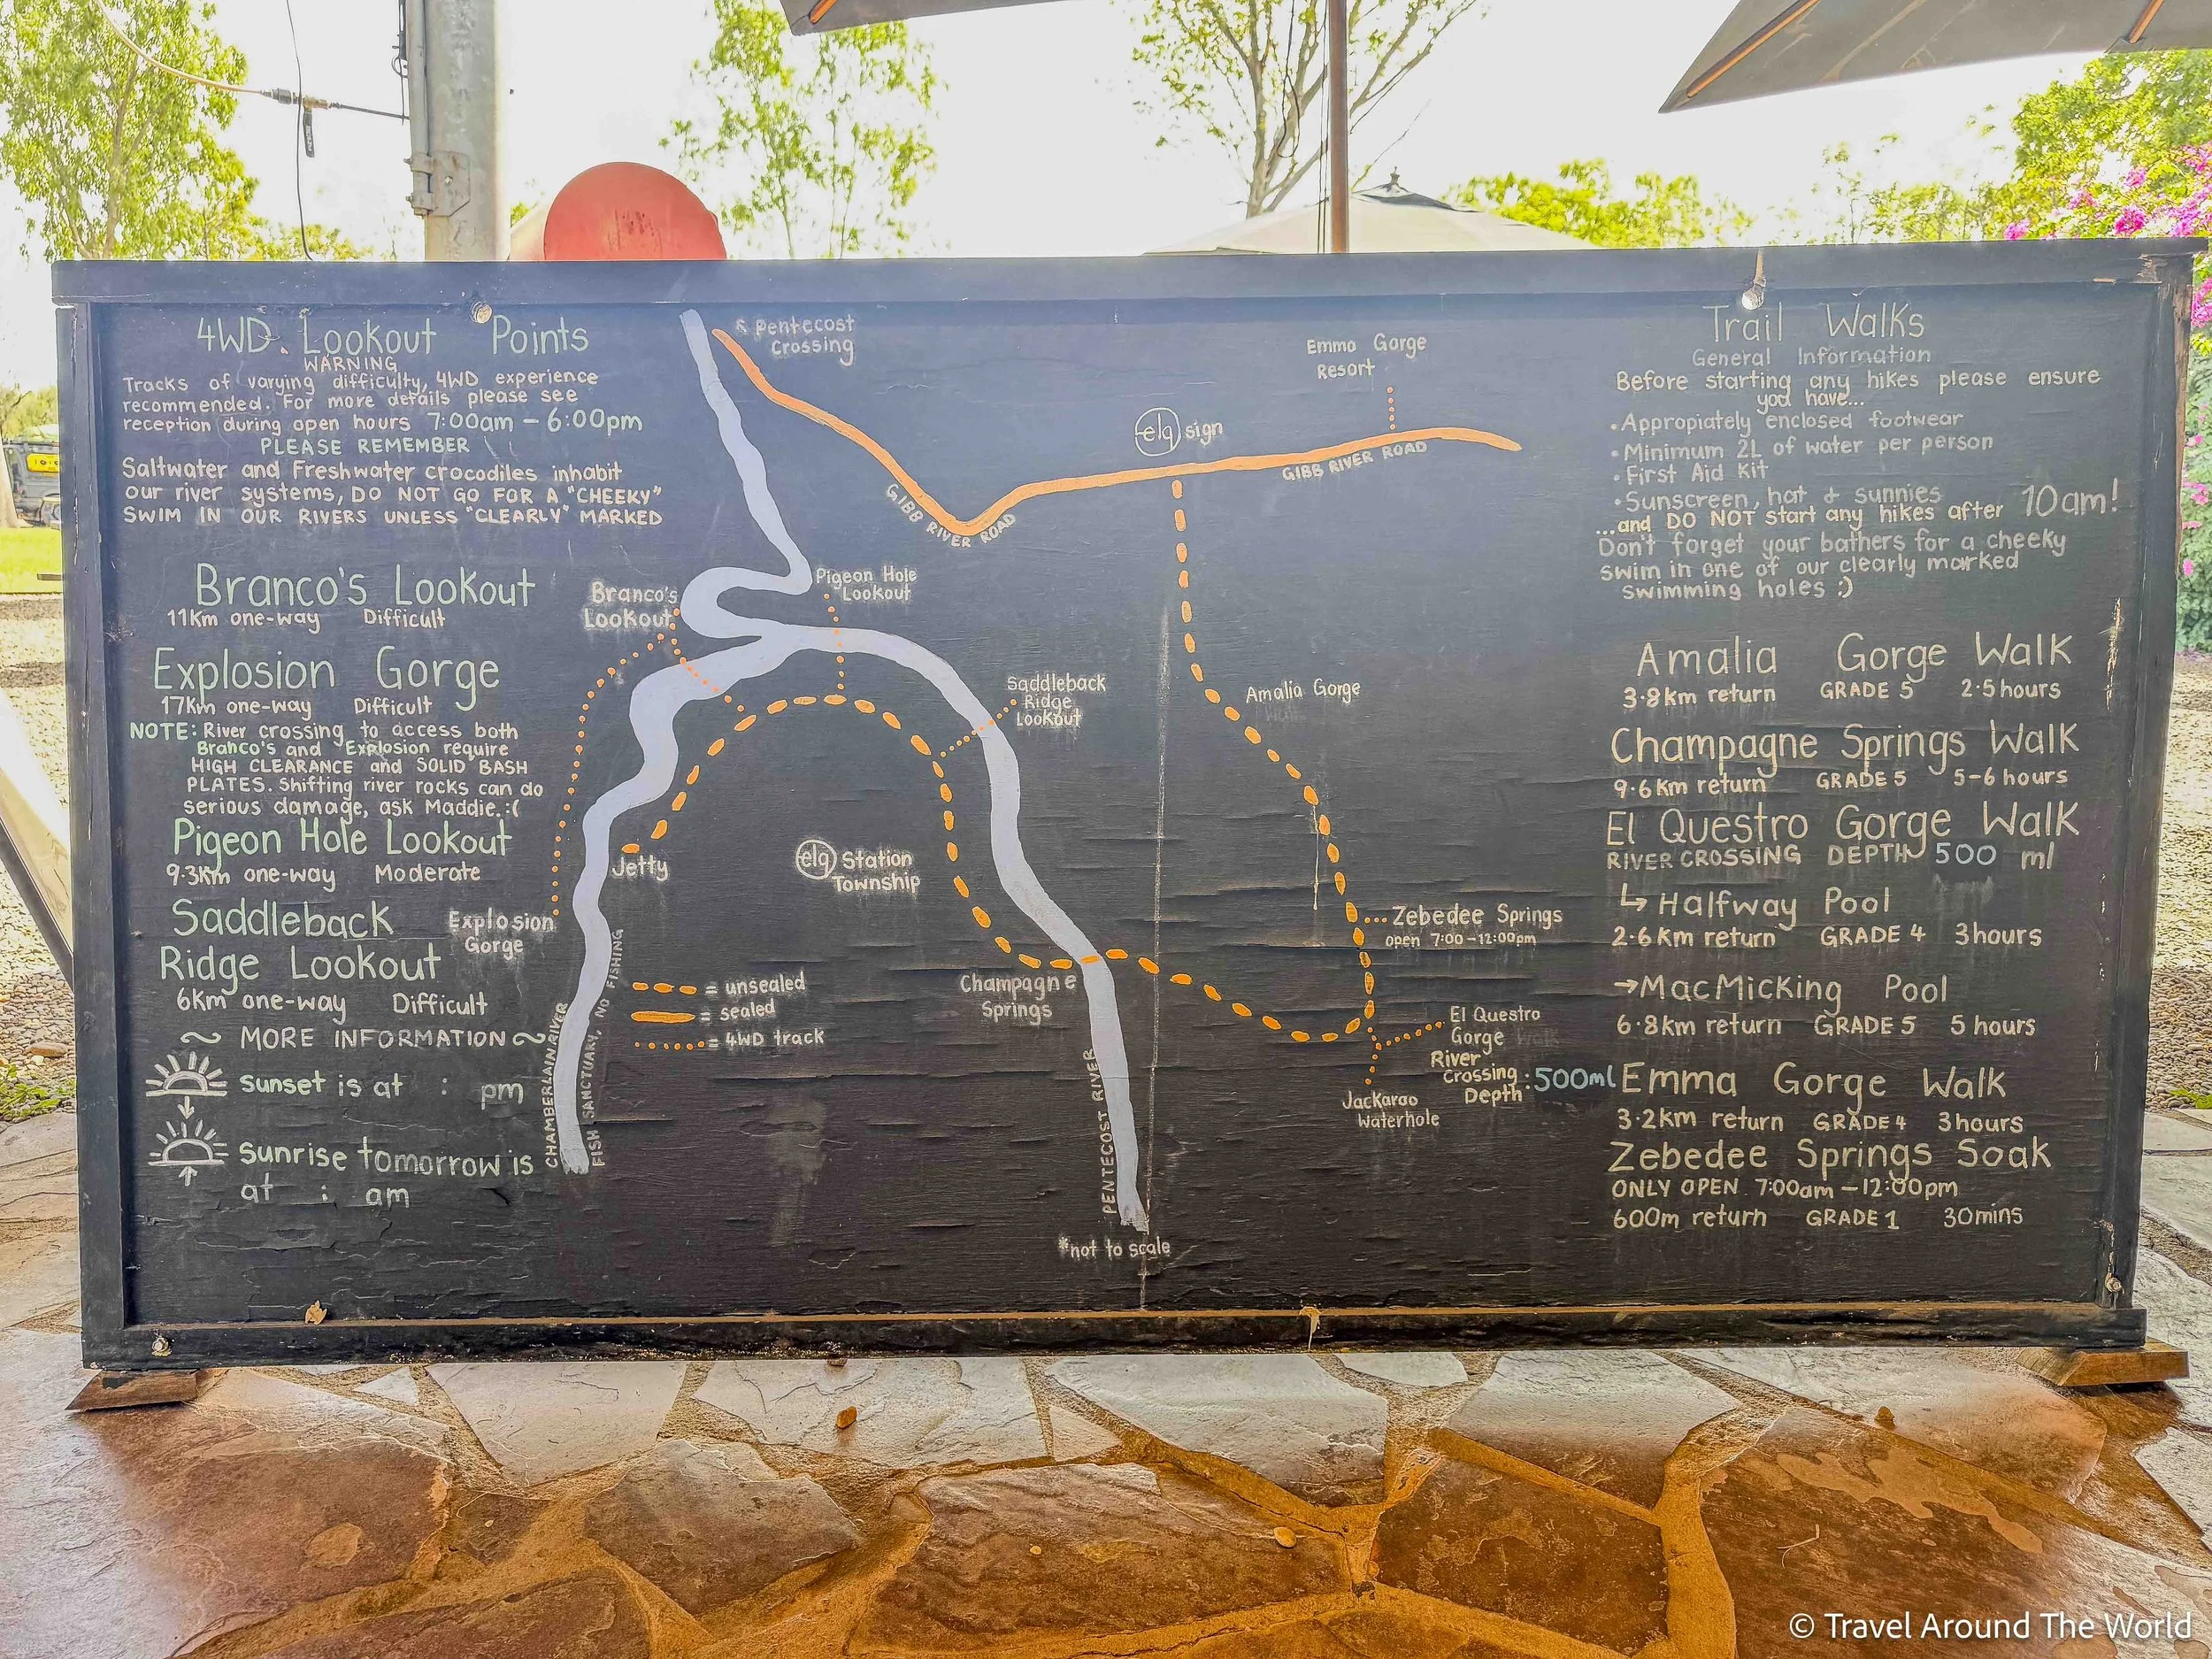 4WD. Lookout Points
WARNING
Tracks of varying difficulty, 4WD experience
recommended. For more details please see
reception during open hours 7:00am - 6:00pm
PLEASE REMEMBER
Saltwater and Freshwater crocodiles inhabit
our river systems, DO NOT GO FOR A "CHEEKY"
SWIM IN OUR RIVERS UNLESS "CLEARLY" MARKED
Branco's Lookout
11Km one-way Difficult
Explosion Gorge
17Km one-way Difficult
NOTE: River crossing to access both
Branco's and Explosion require
HIGH CLEARANCE and SOLID BASH
PLATES. Shifting river rocks can do
serious damage, ask Maddie. :(
Pigeon Hole Lookout
9.3Km one-way Moderate
Saddleback
Ridge Lookout
6Km one-way Difficult
~ MORE INFORMATION ~
sunset is at : pm
sunrise tomorrow is
at : am
Pentecost
Crossing
Emma Gorge
Resort
elq sign
GIBB RIVER ROAD
GIBB RIVER ROAD
Pigeon Hole
Lookout
Branco's
Lookout
Saddleback
Ridge
Lookout
Amalia Gorge
Jetty
elq Station
Township
Explosion
Gorge
Zebedee Springs
open 7:00-12:00pm
Champagne
Springs
= unsealed
= sealed
= 4WD track
El Questro
Gorge
River
Crossing : 500ml
Depth
Jackaroo
Waterhole
CHAMBERLAIN RIVER
FISH SANCTUARY, NO FISHING
PENTECOST RIVER
*not to scale
Trail Walks
General Information
Before starting any hikes please ensure
you have...
• Appropiately enclosed footwear
• Minimum 2L of water per person
• First Aid Kit
• Sunscreen, hat & sunnies
...and DO NOT start any hikes after 10am!
Don't forget your bathers for a cheeky
swim in one of our clearly marked
swimming holes :)
Amalia Gorge Walk
3.8km return GRADE 5 2.5hours
Champagne Springs Walk
9.6km return GRADE 5 5-6 hours
El Questro Gorge Walk
RIVER CROSSING DEPTH 500 ml
↳ Halfway Pool
2.6km return GRADE 4 3hours
→ MacMicking Pool
6.8km return GRADE 5 5 hours
Emma Gorge Walk
3.2km return GRADE 4 3hours
Zebedee Springs Soak
ONLY OPEN 7:00am - 12:00pm
600m return GRADE 1 30mins
© Travel Around The World